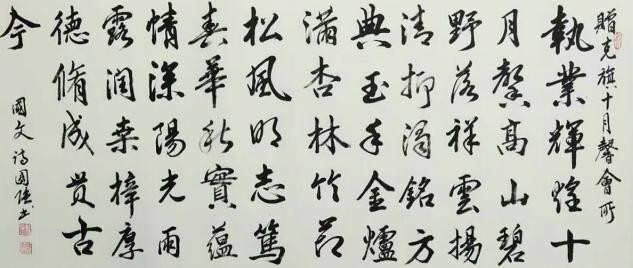 贈克旗十月馨會所
執業輝煌十
月馨高山碧
野落祥雲揚
清抑濁銘方
典玉手金爐
滿杏林竹節
松風明志篤
春華秋實蘊
情深陽光雨
露潤桑梓厚
德脩成貫古
今
國文诗國书